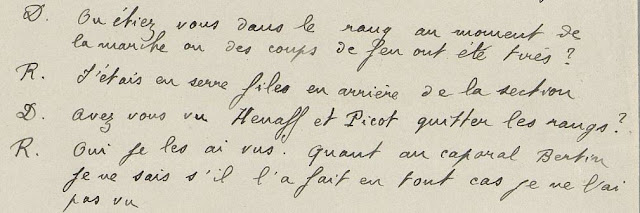 D. Où étiez vous dans le rang au moment de
la marche ou des coups de feu ont été tirés ?
R. J'étais en serre files en arrière de la section
D. Avez vous vu Henaff et Picot quitter les rangs ?
R. Oui je les ai vus. Quant au caporal Bertin
je ne sais s'il l'a fait en tout cas je ne l'ai
pas vu